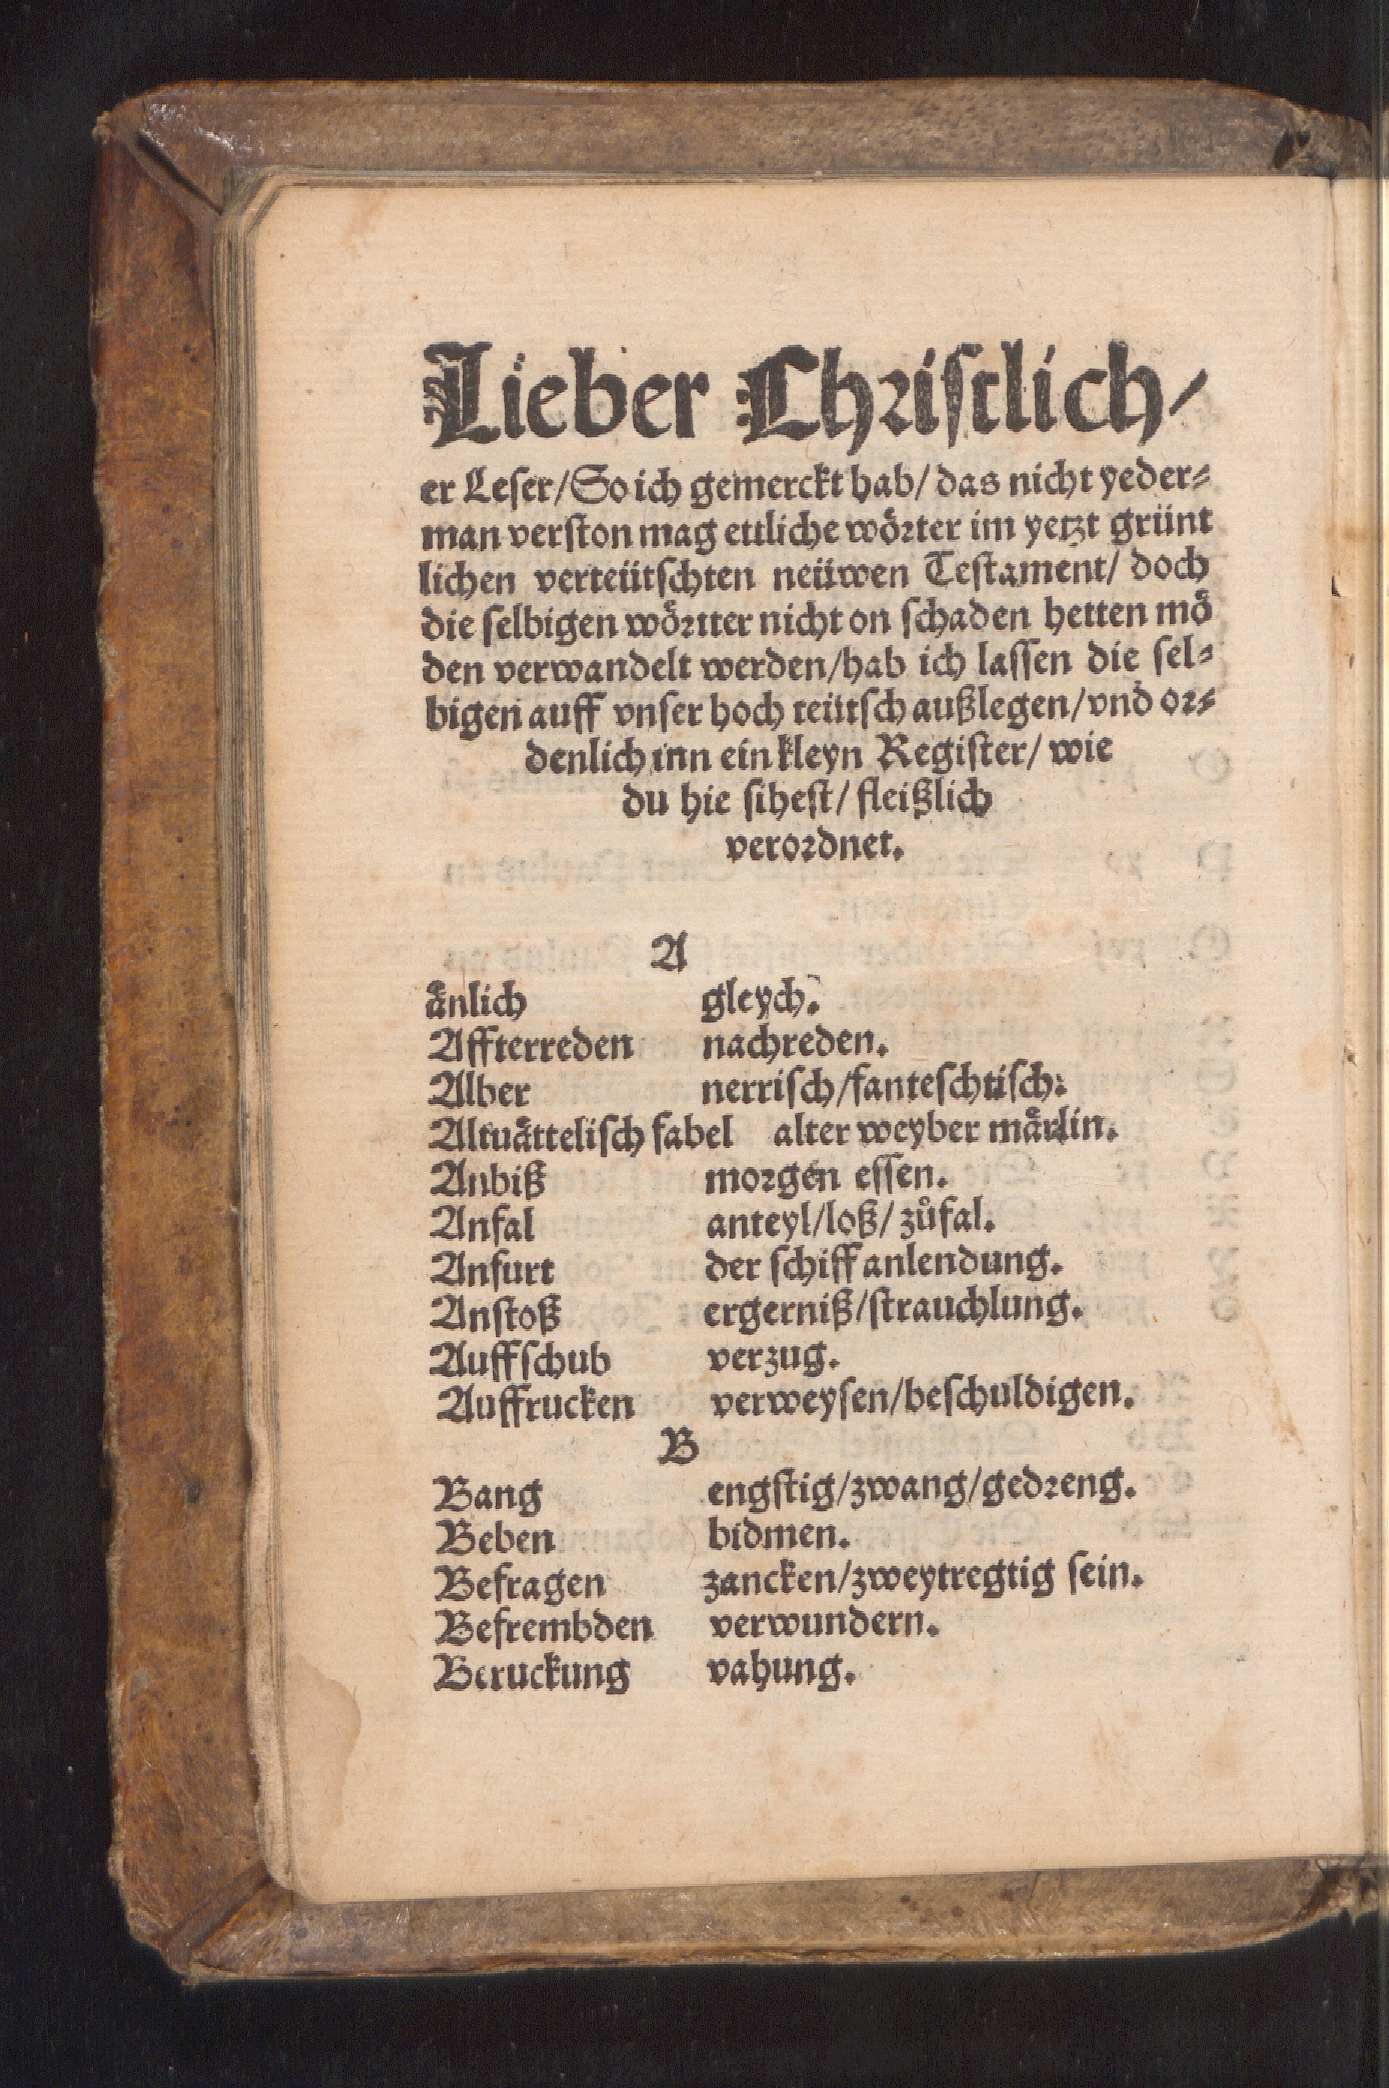 Lieber Christlich/
er Leser/So ich gemerckt hab/ das nicht yeder⸗
man verston mag ettliche wörter im yetzt grünt
lichen verteütschten neüwen Testament/ doch
die selbigen wörtter nicht on schaden hetten mö
den verwandelt werden/hab ich lassen die sel⸗
bigen auff vnser hoch teütsch außlegen/vnd or⸗
denlich inn ein kleyn Register/ wie
du hie sihest/ fleißlich
verordnet.
A
änlich gleych.
Affterreden nachreden.
Alber nerrisch/fanteschtisch:
Altuättelisch fabel alter weyber märlin.
Anbiß morgen essen.
Anfal anteyl/loß/ zůfal.
Anfurt der schiff anlendung.
Anstoß ergerniß/strauchlung.
Auffschub verzug.
Auffrucken verweysen/beschuldigen.
B
Bang engstig/zwang/gedreng.
Beben bidmen.
Befragen zancken/zweytregtig sein.
Befrembden verwundern.
Beruckung vahung.